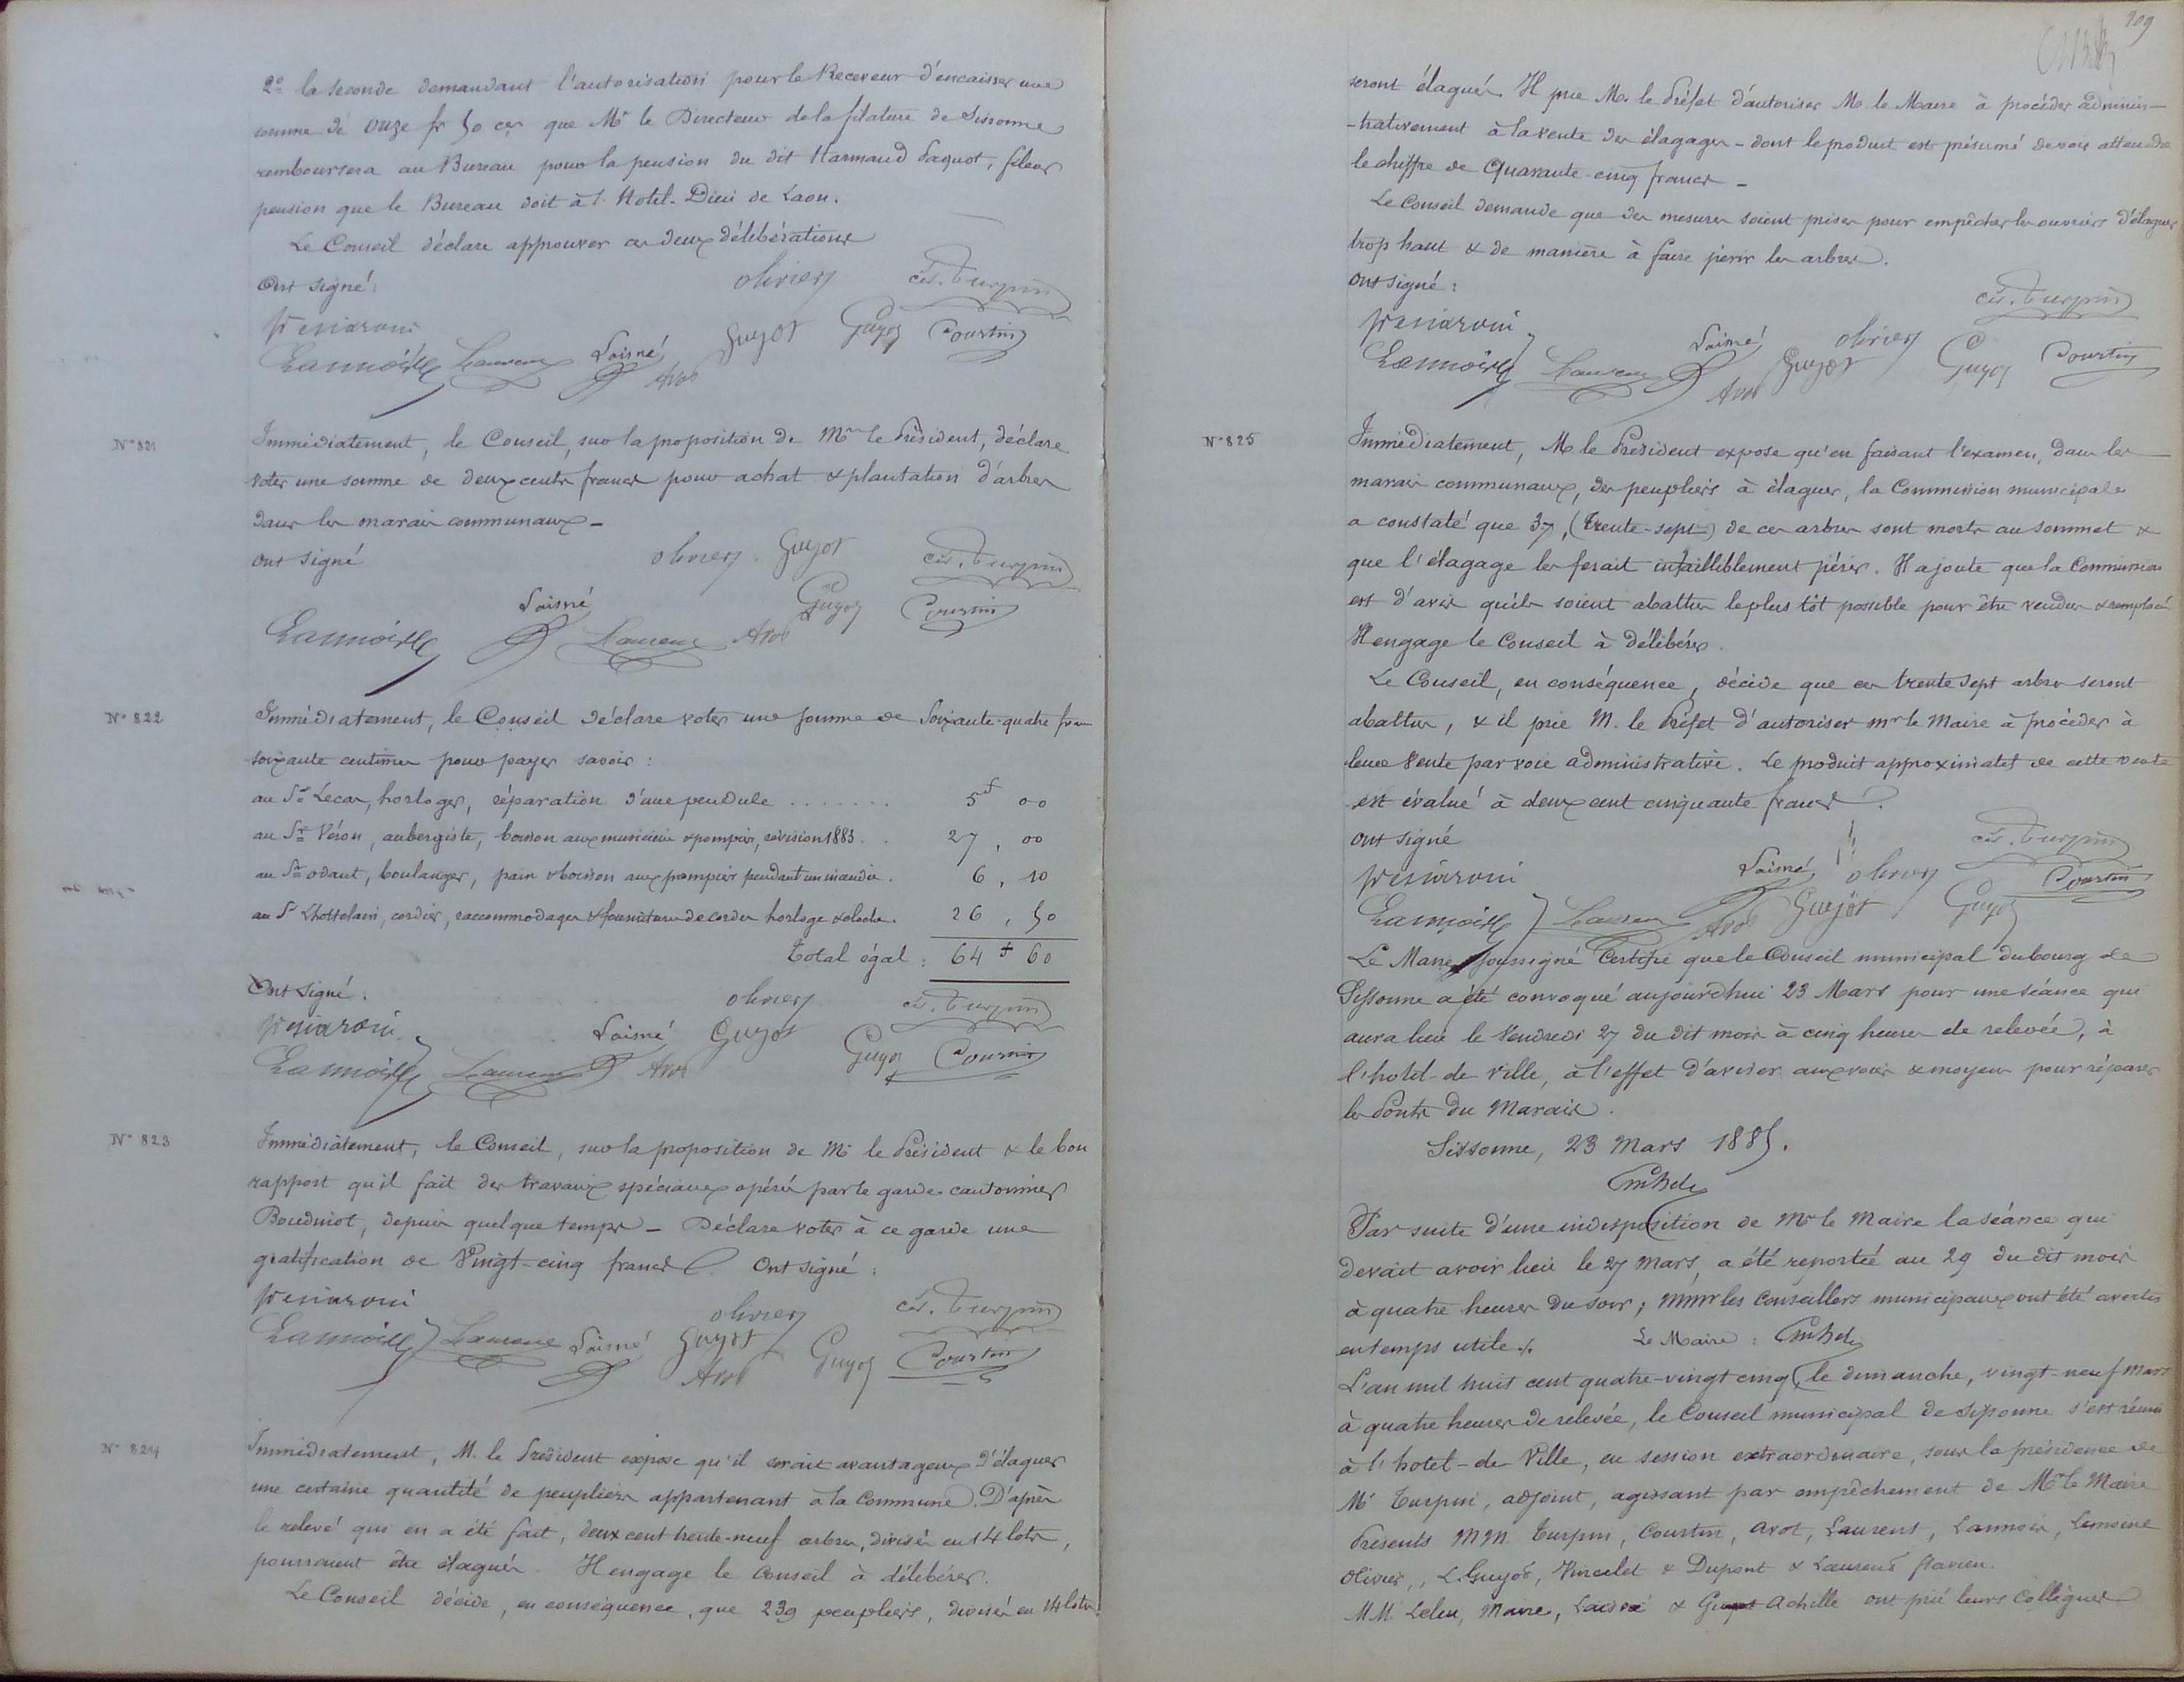 2º la seconde demandant l'autorisation pour le Receveur d'encaisser une
somme de onze fr 50 ces que Mr le Directeur de la filature de Sissonne
remboursera au Bureau pour la pension du dit Harmand Paquot, fileur
pension que le Bureau doit à l'Hotel-Dieu de Laon.
Le Conseil déclare approuver ces deux délibérations
Ont signé:
olivier
cés. Turpin
Lannois
Laurent
Laisné
Avot
Guyot
Guyot
Courtin
Nº 821
Immédiatement, le Conseil, sur la proposition de Mr le Président, déclare
voter une somme de deux cents francs pour achat & plantation d'arbres
dans les marais communaux -
ont signé
olivier
Guyot
cés. Turpin
Lannois
Laisné
Laurent
Avot
Guyot
Courtin
Nº 822
Immédiatement, le Conseil déclare voter une somme de Soixante-quatre fran
soixante centimes pour payer savoir :
au Sr Lecas, horloger, réparation d'une pendule ....... 5f 00
au Sr Véron, aubergiste, boisson aux musiciens & pompiers, révision 1883 . . 27 , 00
au Sr odant, boulanger, pain & boisson aux pompiers pendant un incendie . 6 , 10
au Sr Lhottelain, cordier, raccommodages & fourniture de cordes horloge & cloche . 26 , 50
Total égal : 64 f 60
Ont signé :
olivier
cés. Turpin
Lannois
Laurent
Laisné
Avot
Guyot
Guyot
Courtin
Nº 823
Immédiatement, le Conseil, sur la proposition de Mr le Président & le bon
rapport qu'il fait des travaux spéciaux opérés par le garde cantonnier
Boudniot, depuis quelque temps - Déclare voter à ce garde une
gratification de Vingt-cinq francs. Ont signé :
olivier
cés. Turpin
Lannois
Laurent
Laisné
Guyot
Avot
Guyot
Courtin
Nº 824
Immédiatement, M. le Président expose qu'il serait avantageux d'élaguer
une certaine quantité de peupliers appartenant à la Commune. D'après
le relevé qui en a été fait, deux cent trente-neuf arbres, divisés en 14 lots,
pourraient être élagués. Il engage le Conseil à délibérer.
Le Conseil décide, en conséquence, que 239 peupliers, divisés en 14 lots
209
seront élagués. Il prie M. le Préfet d'autoriser M. le Maire à procéder adminis-
-trativement à la vente des élagages - dont le produit est présumé devoir atteindre
le chiffre de Quarante-cinq francs -
Le Conseil demande que des mesures soient prises pour empêcher les ouvriers d'élaguer
trop haut & de manière à faire périr les arbres.
ont signé :
cés. Turpin
Lannois
Laurent
Laisné
Avot
olivier
Guyot
Guyot
Courtin
Nº 825
Immédiatement, M. le Président expose qu'en faisant l'examen, dans les
marais communaux, des peupliers à élaguer, la Commission municipale
a constaté que 37, (trente-sept) de ces arbres sont morts au sommet &
que l'élagage les ferait infailliblement périr. Il ajoute que la Commission
est d'avis qu'ils soient abattus le plus tôt possible pour être vendus & remplacés
Il engage le Conseil à délibérer.
Le Conseil, en conséquence, décide que ces trente sept arbres seront
abattus, & il prie M. le Préfet d'autoriser Mr le Maire à procéder à
leur vente par voie administrative. Le produit approximatif de cette vente
est évalué à deux cent cinquante francs.
ont signé
cés. Turpin
Lannois
Laurent
Laisné
Avot
olivier
Guyot
Guyot
Courtin
Le Maire soussigné Certifie que le Conseil municipal du bourg de
Sissonne a été convoqué aujourd'hui 23 Mars pour une séance qui
aura lieu le Vendredi 27 du dit mois à cinq heures de relevée, à
l'hotel-de Ville, à l'effet d'aviser aux voies & moyens pour réparer
les Ponts du Marais.
Sissonne, 23 Mars 1885.
Par suite d'une indisposition de Mr le Maire la séance qui
devait avoir lieu le 27 Mars, a été reportée au 29 du dit mois
à quatre heures du soir, MMrs les Conseillers municipaux ont été avertis
en temps utile ./.
Le Maire :
L'an mil huit cent quatre-vingt cinq, le dimanche, vingt-neuf Mars
à quatre heures de relevée, le Conseil municipal de Sissonne s'est réuni
à l'hotel-de Ville, en session extraordinaire, sous la présidence de
Mr Turpin, adjoint, agissant par empêchement de Mr le Maire
Présents MM. Turpin, Courtin, Avot, Laurent, Lannois, Lemoine
Olivier, L. Guyot, Vincelet & Dupont & Laurent flavien.
M.M. Leleu, Maire, Laisné & Guyot Achille ont prié leurs Collègues